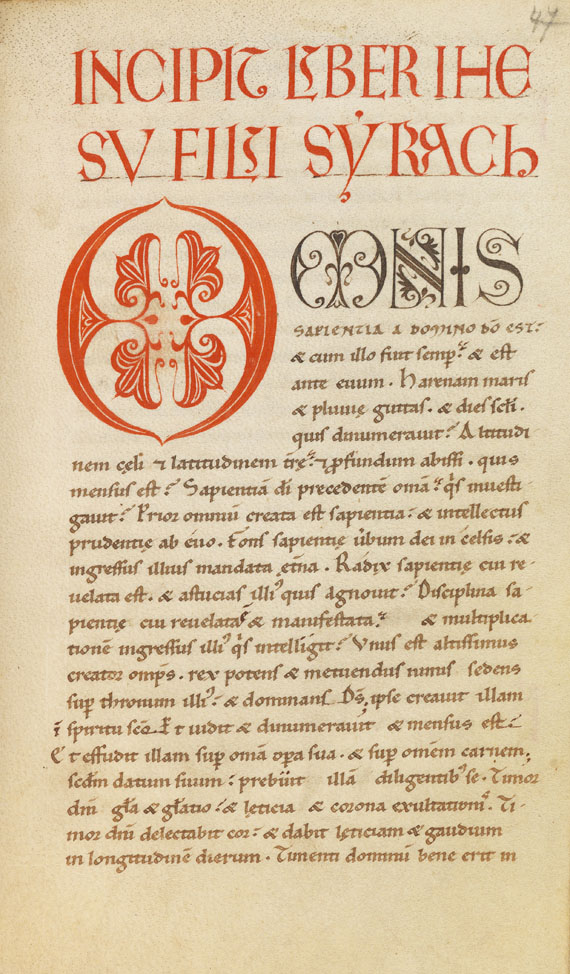 47
INCIPIT LIBER IHE
SV FILII SYRACh
OMNIS
SAPIENTIA A DOMINO DO EST.
& cum illo fuit semp. & est
ante euum. Harenam maris
& pluuię guttas. & dies scli.
quis dinumerauit? Altitudi
nem cęli & latitudinem trę. & pfundum abissi. quis
mensus est? Sapientiā di precedentē omā. qis inuesti-
gauit? Prior omniū creata est sapientia. & intellectus
prudentię ab euo. Fons sapientię ůbum dei in celsis. &
ingressus illius mandata etna. Radix sapientię cui re-
uelata est. & astucias illi9 quis agnouit? Disciplina sa-
pientię cui reuelata & manifestata? & multiplica-
tionē ingressus illi9 qis intelligit? Vnus est altissimus
creator omps. rex potens & metuendus nimis sedens
sup thronum illi9. & dominans Ds, ipse creauit illam
ī spiritu scō. Et uidit & dinumerauit & mensus est.
Et effudit illam sup omā opa sua. & sup omēm carnem,
scdm datum suum. prebuit illā diligentib9 se. Timor
dni gła & głatio. & lęticia & corona exultationi9. Ti-
mor dni delectabit cor. & dabit lęticiam & gaudium
in longitudinē dierum. Timenti dominū bene erit in